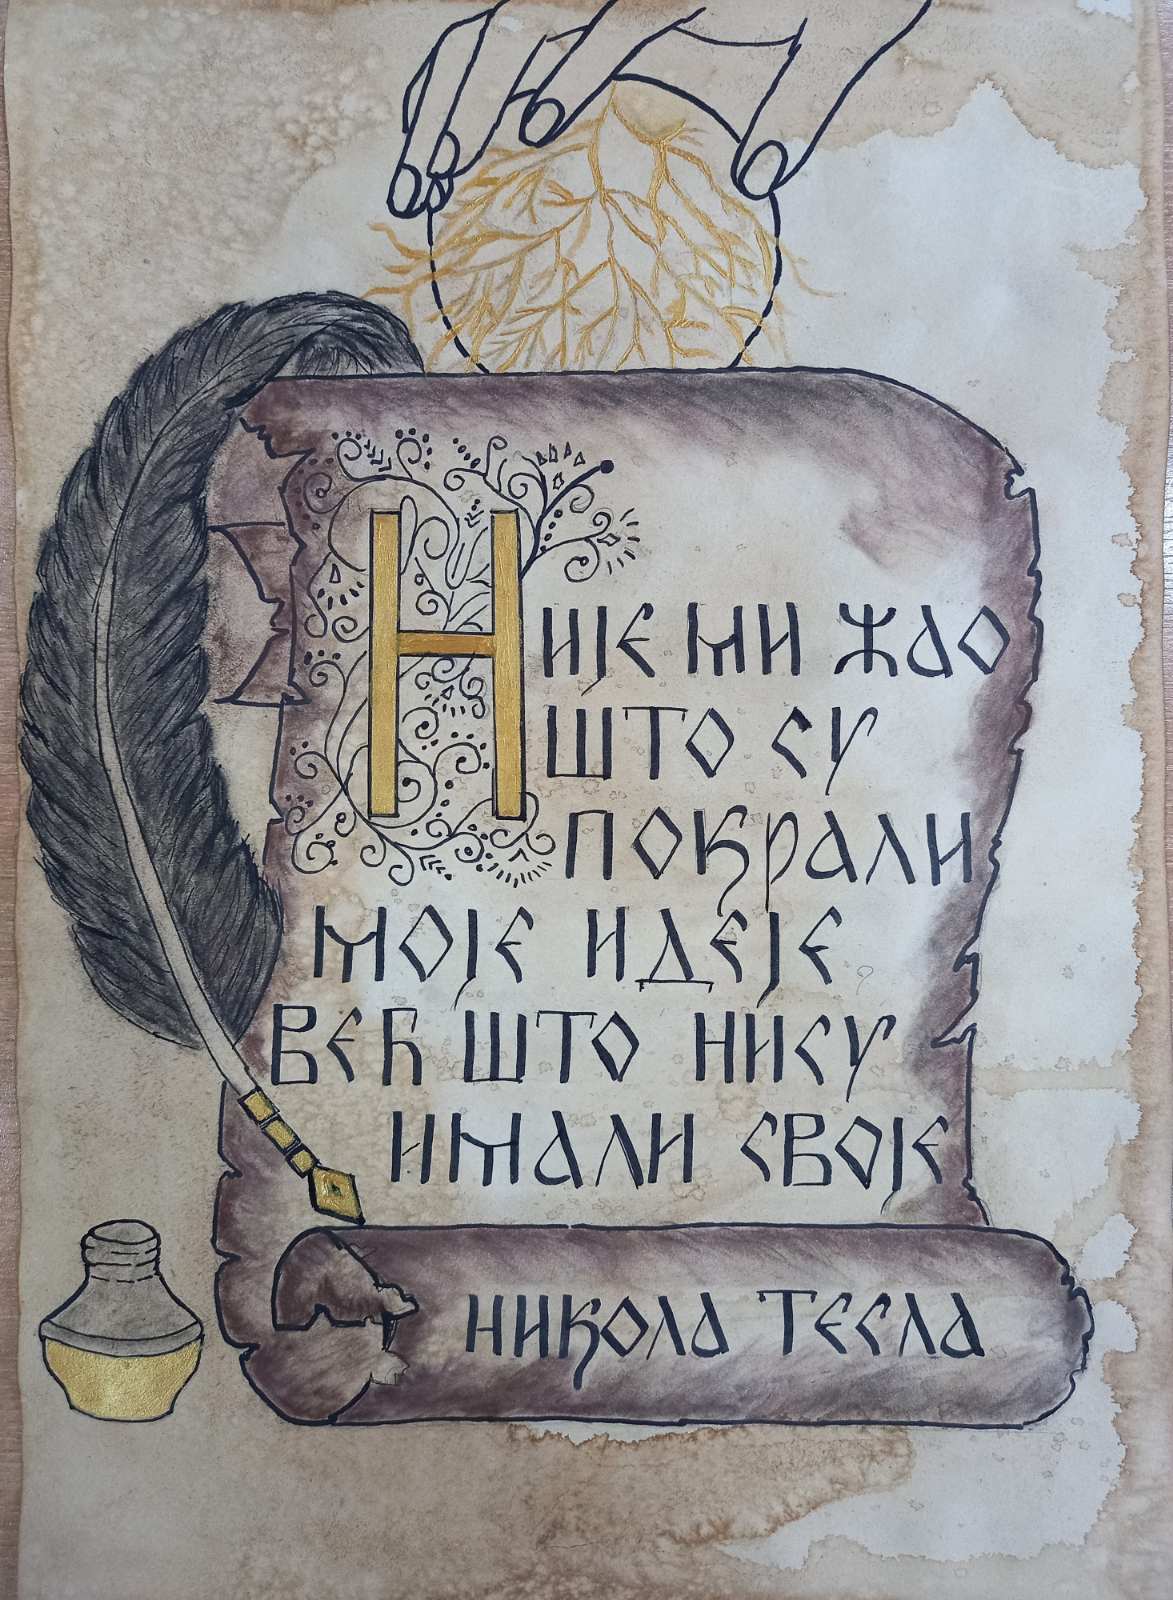 Није ми жао
што су
покрали
моје идеје
већ што нису
имали своје
Никола Тесла